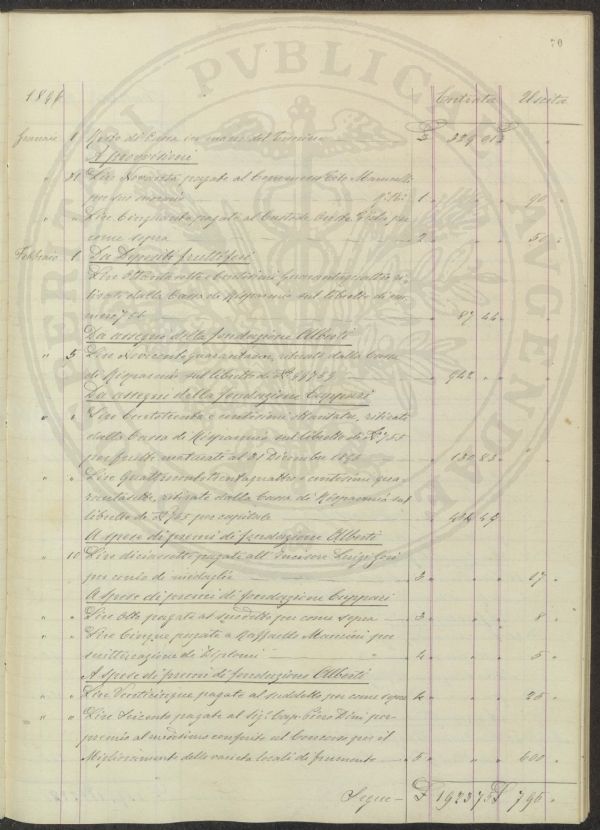 70
PUBLICAE
AUGENDAE
1896
Entrata Uscita
Gennaio 1 Resto di Cassa in mano del
A provvisioni
" 31 Lire Novanta pagate al
per suo onorario 1 " " " 90 "
" " Lire Cinquanta pagate al Custode per
come sopra 2 " " " 50 "
Febbraio 1 Da Depositi fruttiferi
Lire Ottantasette e Centesimi quarantaquattro ri-
tirate dalla Cassa di Risparmio sul libretto di nu-
mero 766 87 44
Da assegni della fondazione Alberti
" 5 Lire Novecentoquarantadue, ritirate dalla Cassa
di Risparmio sul libretto di N.° 942 "
Da assegni della fondazione Cuppari
" " Lire Centotrenta e centesimi ottantatre, ritirate
dalla Cassa di Risparmio sul libretto di N.° 755
per frutti maturati al 31 Dicembre 1895 130 83
" " Lire Quattrocentotrentaquattro e centesimi qua-
rantasette, ritirate dalla Cassa di Risparmio sul
libretto di N.° 755 per capitale 434 47
A spese di premi di fondazione Alberti
" 10 Lire diciassette pagate all' Incisore Luigi Gori
per conio di medaglie 3 " " " 17 "
A spese di premi di fondazione Cuppari
" " Lire Otto pagate al suddetto per come sopra 3 " " " 8 "
" " Lire Cinque pagate a Raffaello Mancini per
scritturazione di Diplomi 4 " " " 5 "
A spese di premi di fondazione Alberti
" " Lire Venticinque pagate al suddetto per come sopra 4 " " " 25 "
" " Lire Seicento pagate al Sig. Dini per
premio al medesimo conferito al Concorso per il
Miglioramento delle varietà locali di frumento 5 " " " 600 "
Segue £ 1923 75 £ 795 "